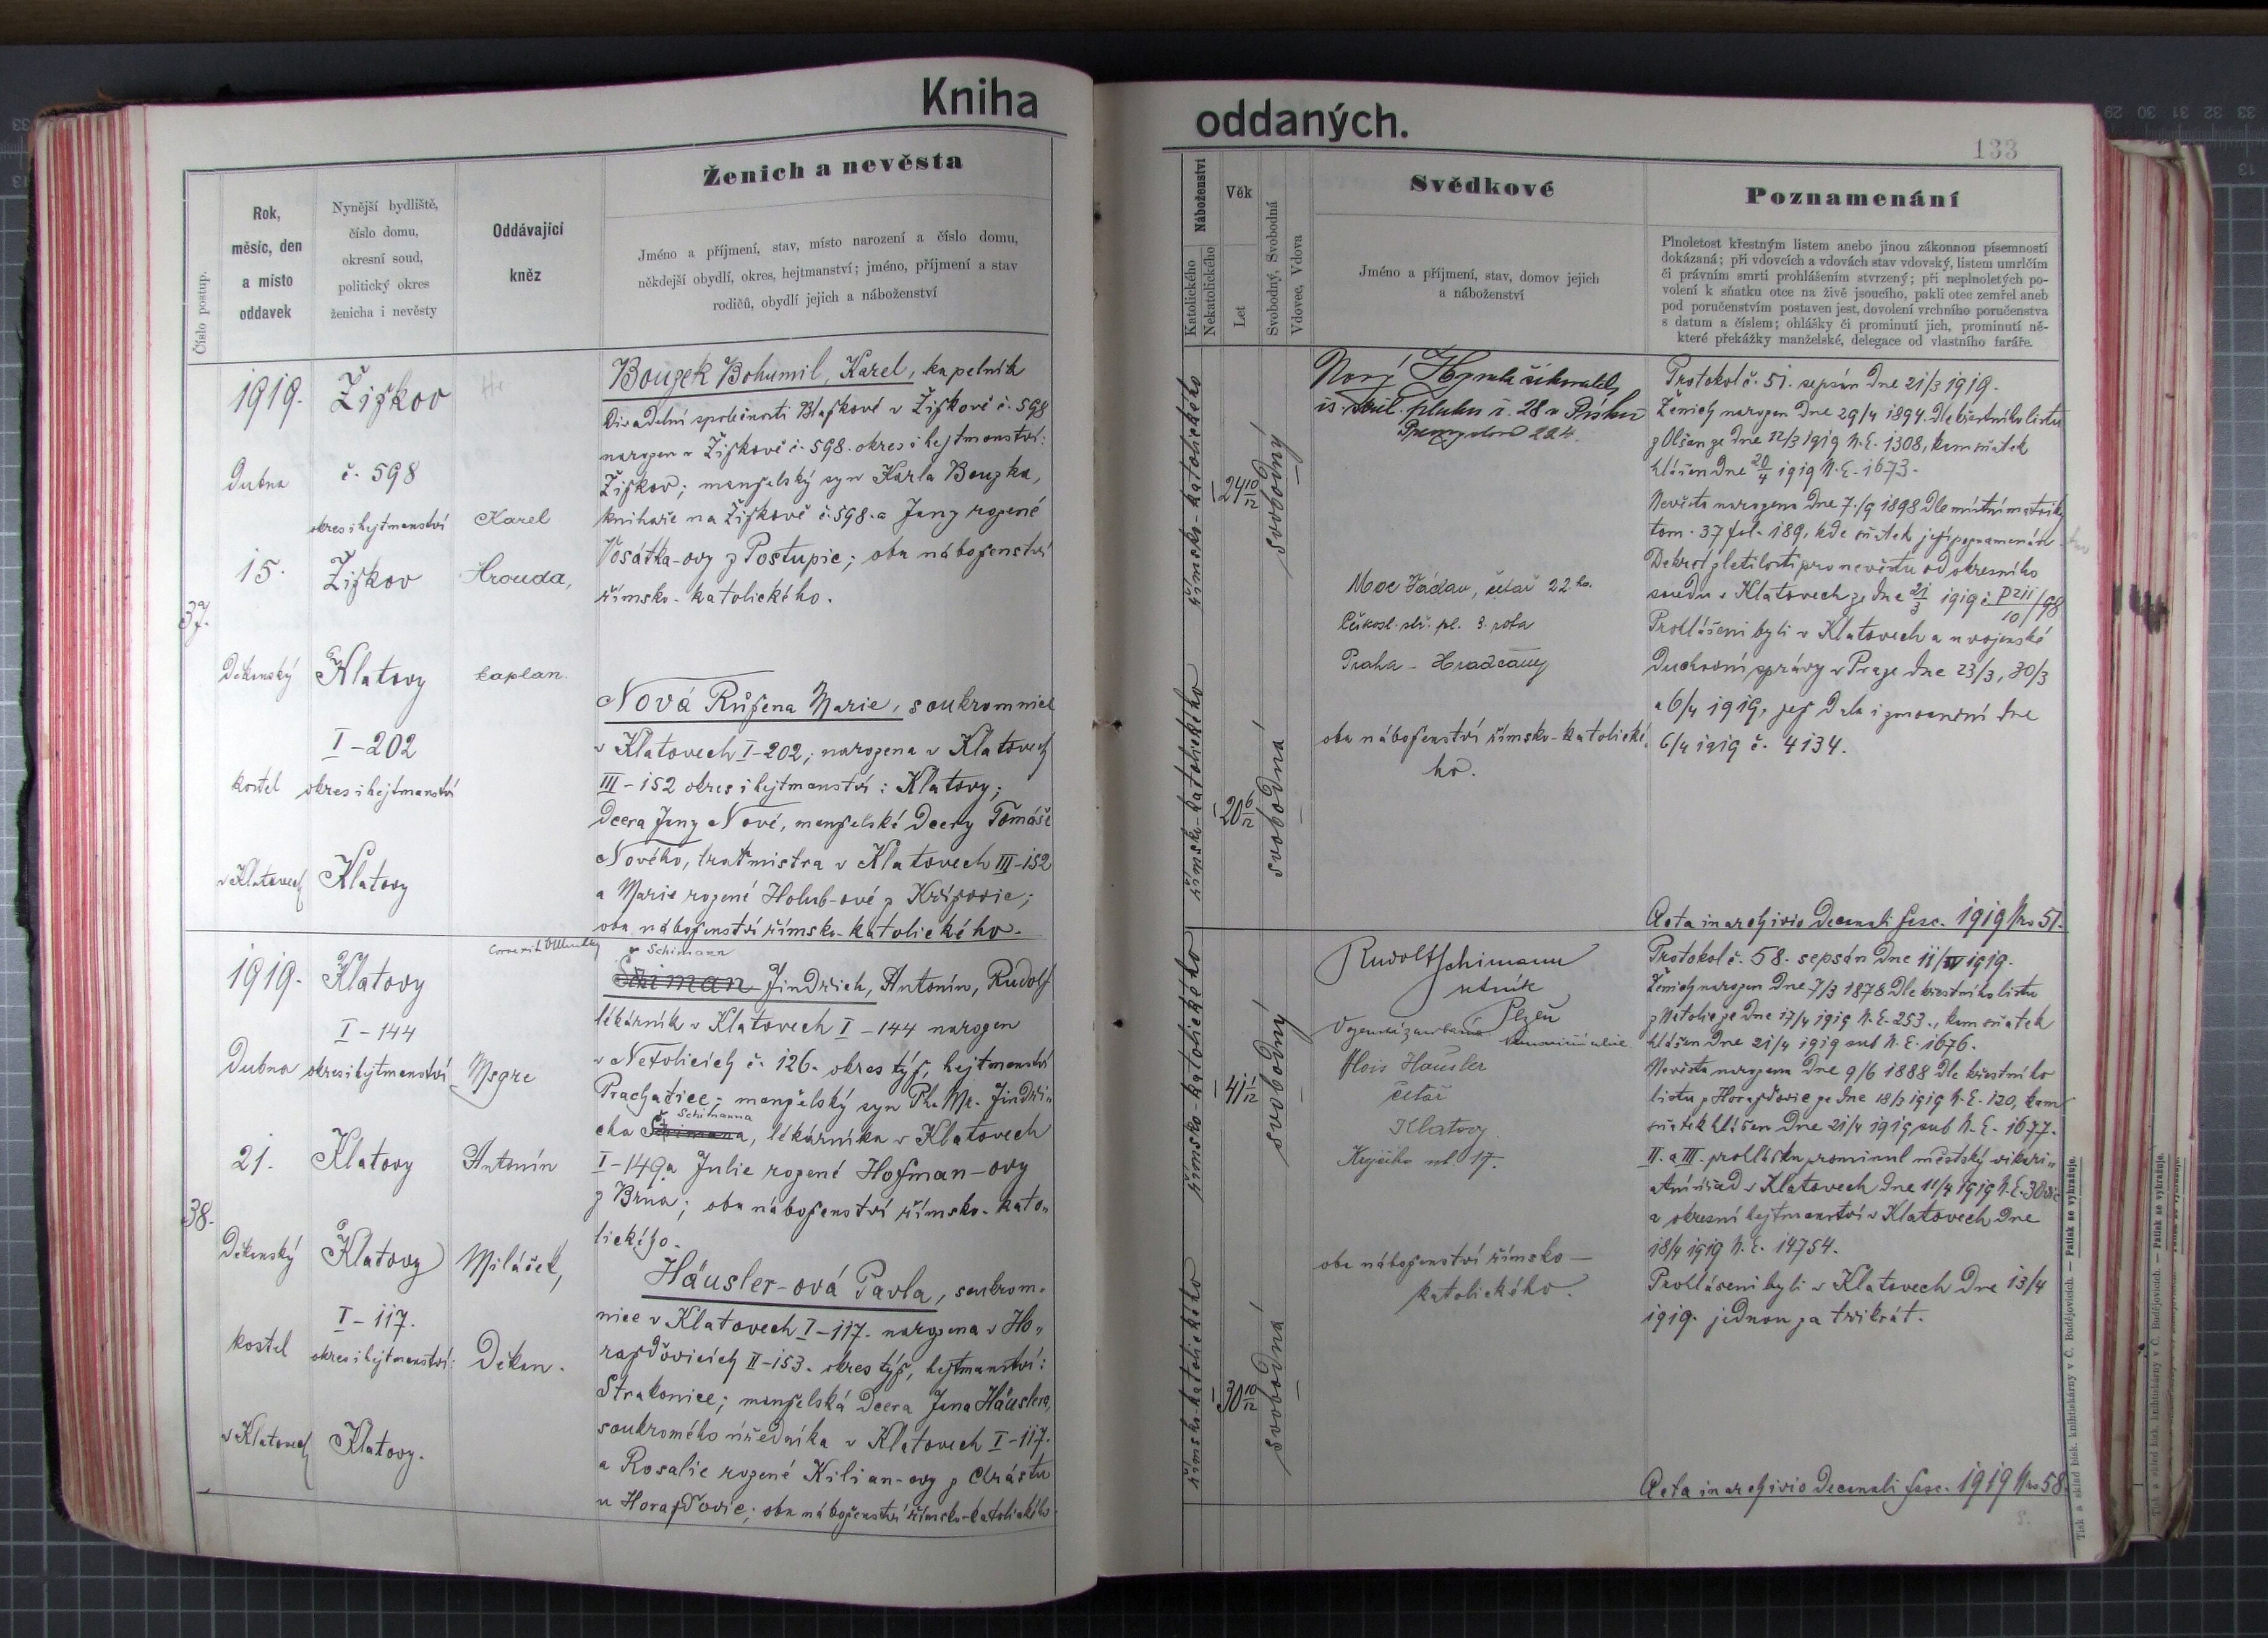 Kniha
oddaných.
133
Číslo postup.
Rok,
měsíc, den
a místo
oddavek
Nynější bydliště,
číslo domu,
okresní soud,
politický okres
ženicha i nevěsty
Oddávající
kněz
Ženich a nevěsta
Jméno a příjmení, stav, místo narození a číslo domu,
někdejší obydlí, okres, hejtmanství; jméno, příjmení a stav
rodičů, obydlí jejich a náboženství
Náboženství
Katolického
Nekatolického
Věk
Let
Svobodný, Svobodná
Vdovec, Vdova
Svědkové
Jméno a příjmení, stav, domov jejich
a náboženství
Poznamenání
Plnoletost křestným listem anebo jinou zákonnou písemností
dokázaná; při vdovcích a vdovách stav vdovský, listem umrlčím
či právním smrti prohlášením stvrzený; při neplnoletých po-
volení k sňatku otce na živě jsoucího, pakli otec zemřel aneb
pod poručenstvím postaven jest, dovolení vrchního poručenstva
s datum a číslem; ohlášky či prominutí jich, prominutí ně-
které překážky manželské, delegace od vlastního faráře.
37.
1919.
Dubna
15.
Děkanský
kostel
v Klatovech
Žižkov
č. 598
okres i hejtmanství
Žižkov
Klatovy
I-202
okres i hejtmanství
Klatovy
Karel
Hrouda,
kaplan.
Bouzek Bohumil, Karel, kapelník
Divadelní společnosti Blažkové v Žižkově č. 598
narozen v Žižkově č. 598. okres i hejtmanství:
Žižkov; manželský syn Karla Bouzka,
knihaře na Žižkově č. 598. a Jany rozené
Vosátka-ovy z Postupic; oba náboženství
římsko-katolického.
Nová Růžena Marie, soukromnice
v Klatovech I-202; narozena v Klatovech
III-152 okres i hejtmanství: Klatovy;
Dcera Jany Nové, manželské Dcery Tomáše
Nového, tratmistra v Klatovech III-152
a Marie rozené Holub-ové z
oba náboženství římsko-katolického.
římsko-katolického
24 10/12
svobodný
římsko-katolického
20 6/12
svobodná
Nový Hynek
pluku č. 28 v Písku
224.
Václav, četař 22ho
Českosl. stř. pl. 3. rota
Praha - Hradčany
oba náboženství římsko-katolické-
ho.
Protokol č. 51. sepsán Dne 21/3 1919.
Ženich narozen Dne 29/4 1894. Dle křestního listu
z Olšan ze Dne 12/3 1919 N.E. 1308, kam sňatek
hlášen Dne 20/4 1919 N.E. 1673.
Nevěsta narozena Dne 7./9 1898 Dle místní matriky
tom. 37 fol. 189, kde sňatek její poznamenán.
Dekret zletilosti pro nevěstu od okresního
soudu v Klatovech ze dne 21/3 1919 č. P VII 98/10
Prohlášeni byli v Klatovech a u vojenské
Duchovní správy v Praze Dne 23/3, 30/3
a 6/4 1919, jež Dala i zmocnění Dne
6/4 1919 č. 4134.
Acta in archivio Decanali fasc. 1919 Nro 51.
38.
1919.
Dubna
21.
Děkanský
kostel
v Klatovech
Klatovy
I-144
okres i hejtmanství
Klatovy
Klatovy
I-117.
okres i hejtmanství:
Klatovy.
Msgre
Antonín
Miláček,
Děkan.
Schimann
Jindřich, Antonín, Rudolf
lékárník v Klatovech I-144 narozen
v Netolicích č. 126. okres týž, hejtmanství
Prachatice; manželský syn Ph. Mr. Jindři„
Schimanna
cha, lékárníka v Klatovech
I-149 a Julie rozené Hofman-ovy
z Brna; oba náboženství římsko-kato„
lického.
Häusler-ová Pavla, soukrom-
nice v Klatovech I-117. narozena v Ho„
ražďovicích II-153. okres týž, hejtmanství:
Strakonice; manželská Dcera Jana Häuslera,
soukromého úředníka v Klatovech I-117.
a Rosalie rozené Kilian-ovy z Chrástu
u Horažďovic; oba náboženství římsko-katolického.
římsko-katolického
41 1/12
svobodný
římsko-katolického
30 10/12
svobodná
Rudolf Schimann
Plzeň
Alois Häusler
četař
Klatovy
ul. 17.
oba náboženství římsko-
katolického.
Protokol č. 58. sepsán Dne 11/IV 1919.
Ženich narozen Dne 7/3 1878 Dle křestního listu
z Netolic ze Dne 17/4 1919 N.E. 253., kam sňatek
hlášen Dne 21/4 1919 sub N.E. 1676.
Nevěsta narozena Dne 9/6 1888 Dle křestního
listu z Horažďovic ze Dne 18/3 1919 N.E. 120, kam
sňatek hlášen Dne 21/4 1919 sub N.E. 1677.
II. a III. prohlášku prominul městský vikari„
átní úřad v Klatovech Dne 11/4 1919 N.E. 30
a okresní hejtmanství v Klatovech Dne
18/4 1919 N.E. 14754.
Prohlášeni byli v Klatovech Dne 13/4
1919. jednou za třikrát.
Acta in archivio Decanali fasc. 1919 Nro 58.
Tisk a sklad bisk. knihtiskárny v Č. Budějovicích. — Patisk se vyhražuje.